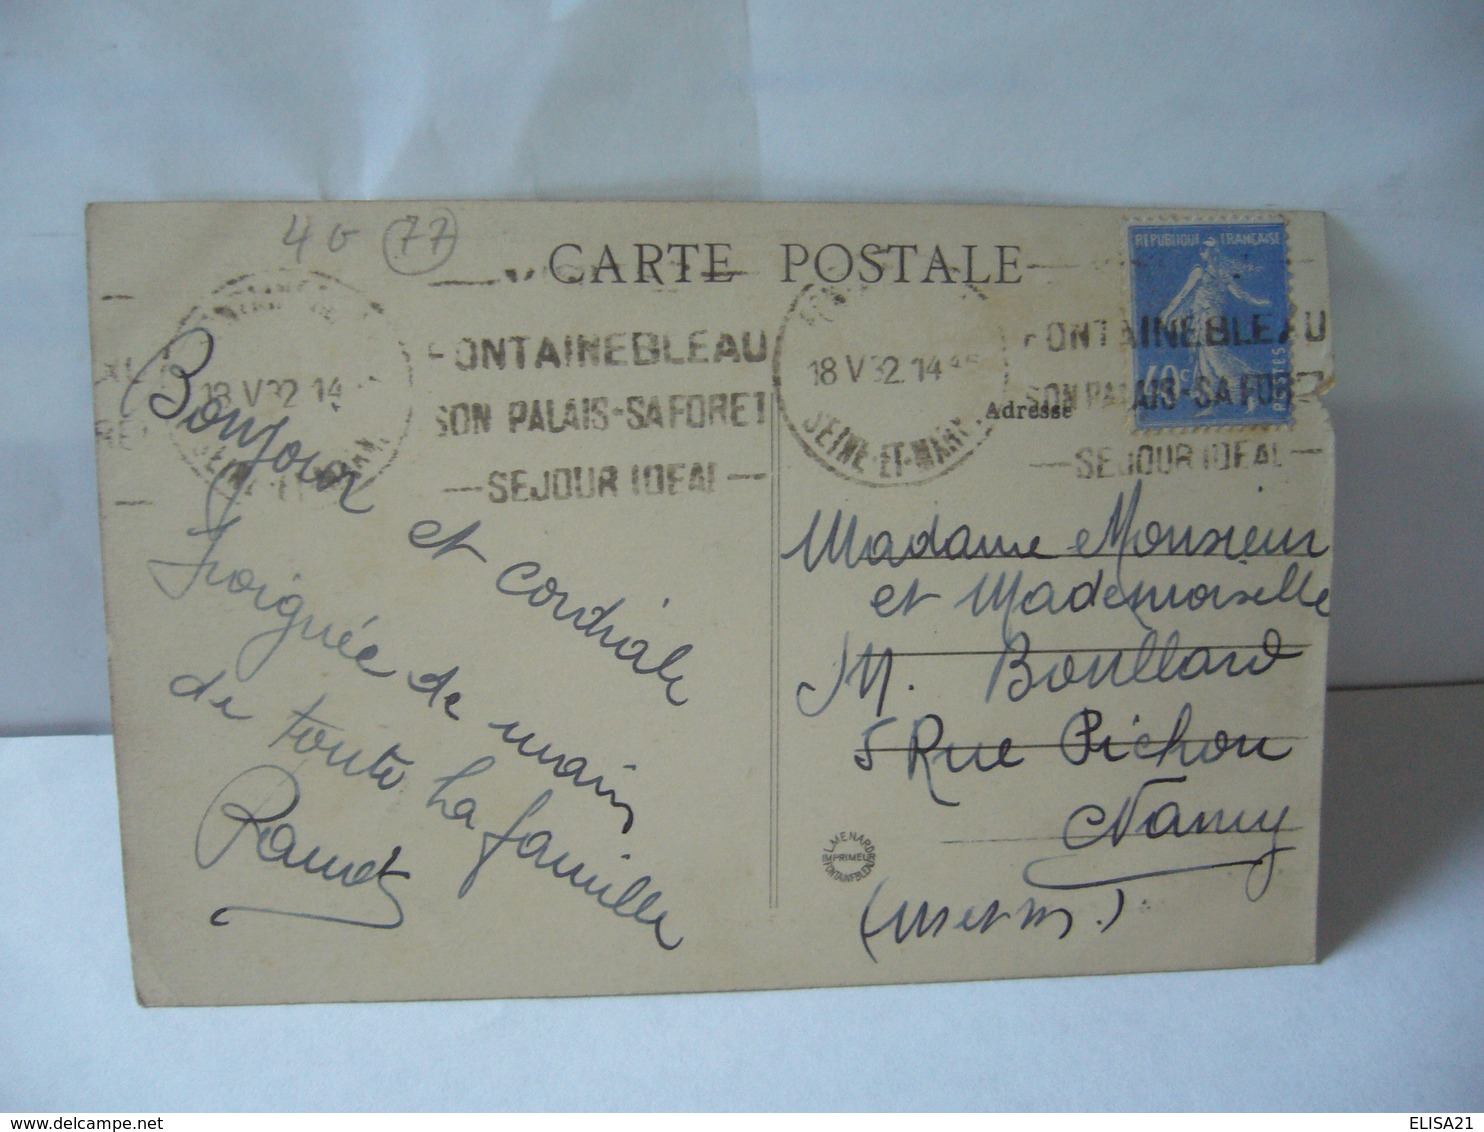 4 G 77
CARTE POSTALE
RÉPUBLIQUE FRANÇAISE
40c
POSTES
18 V 32 14
SEINE-ET-MARN
FONTAINEBLEAU
SON PALAIS-SA FORET
SEJOUR IDEAL
18 V 32 14 45
SEINE-ET-MARN
FONTAINEBLEAU
SON PALAIS-SA FORET
SEJOUR IDEAL
Adresse
Bonjour et cordiale
Poignée de main
de toute la famille
Madame Monsieur
et Mademoiselle
M. Boullard
5 Rue Pichon
Nancy
(M et M.)
L. MENARD
IMPRIMEUR
FONTAINEBLEAU
ELISA21